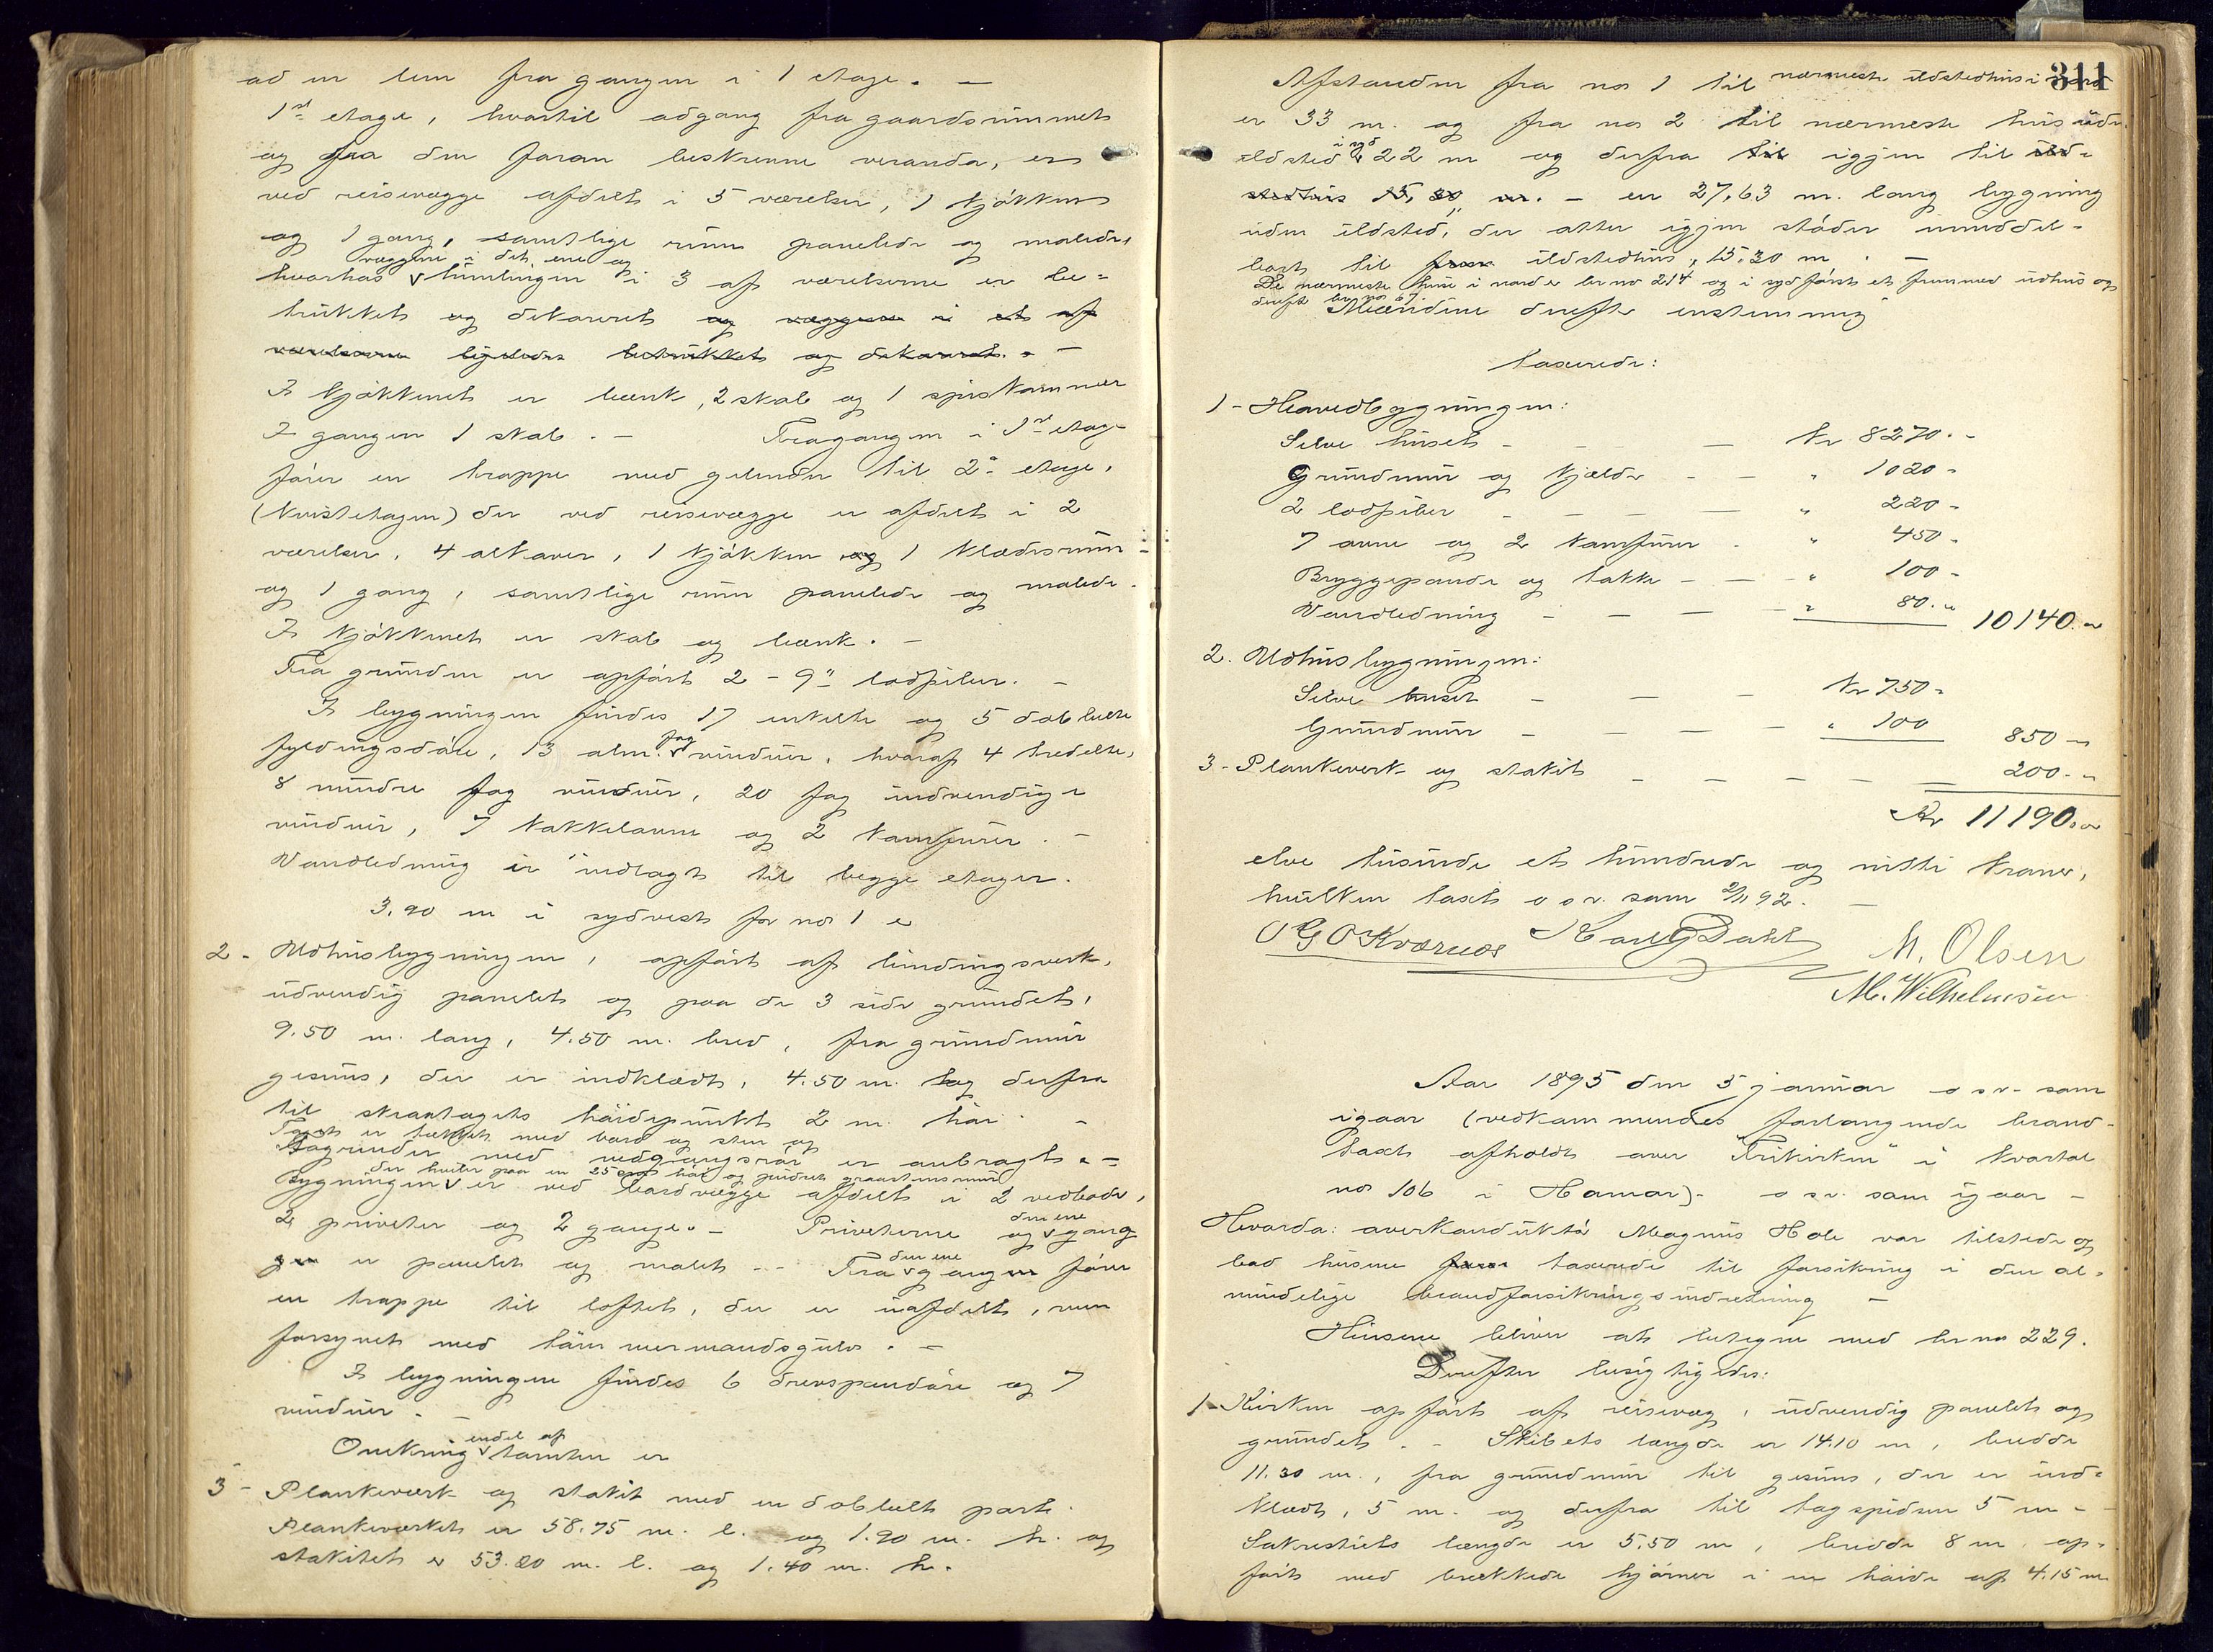 ad en lem fra gangen i 1 etage. —
1ste etage, hvortil adgang fra gaardsrummet
og fra den foran beskrevne veranda, er
ved reisevægge afdelt i 5 værelser, 1 kjøkken
og 1 gang, samtlige rum panelede og malede,
væggene i det ene og
hvorhos himlingen i 3 af værelserne er be-
trukket og dekoreret og væggene i et af
værelserne ligeledes betrukket og dekoreret. —
I kjøkkenet er bænk, 2 skab og 1 spiskammer
I gangen 1 skab. — Fra gangen i 1ste etage
fører en trappe med gelænder til 2den etage,
(kvistetagen) der ved reisevægge er afdelt i 2
værelser, 4 alkover, 1 kjøkken og 1 klædesrum
og 1 gang, samtlige rum panelede og malede.
I kjøkkenet er skab og bænk. —
Fra grunden er opført 2 - 9" lodpiber. —
I bygningen findes 17 enkelte og 5 dobbelte
fyldingsdøre, 13 alm. fag vinduer, hvoraf 4 tredelte,
8 mindre fag vinduer, 20 fag indvendige
vinduer, 7 kakkelovne og 2 komfurer. —
Vandledning er indlagt til begge etager.
3.90 m i sydvest for no 1 er
2 - Udhusbygningen, opført af bindingsverk,
udvendig panelet og paa de 3 sider grundet,
9.50 m. lang, 4.50 m. bred, fra grundmur
gesims, der er indklædt, 4.50 m. og derfra
til skraatagets høidepunkt 2 m. høi —
Taget er tækket med bord og sten og
Tagrender med nedgangsrør er anbragt. —
der hviler paa en 25 cm høi og pudset graastensmur
Bygningen er ved bordvægge afdelt i 2 vedboder,
2 priveter og 2 gange. — Priveterne og den ene gang
er panelet og malet. — Fra den ene gang fører
en trappe til loftet, der er uafdelt, men
forsynet med tømmermandsgulv. —
I bygningen findes 6 drevspeildøre og 7
vinduer. —
Omkring endel af tomten er
3 - Plankeværk og stakit med en dobbelt port.
Plankeværket er 58.75 m. l. og 1.90 m. h. og
stakitet er 53.80 m. l. og 1.40 m. h.
311
Afstanden fra no 1 til nærmeste ildstedhus i nord
er 33 m. og fra no 2 til nærmeste hus uden
ildsted i syd 22 m og derfra til igjen til ild-
stedhus 15,30 m. — en 27,63 m. lang bygning
uden ildsted, der atter igjen støder umiddel-
bart til ildstedhus, 15.30 m. —
De nærmeste huse i nord er br no 214 og i syd først et fremmed udhus og
derefter br no 67.
Mændene derefter enstemmig
taxerede:
1 - Hovedbygningen:
Selve huset — — Kr 8270. -
Grundmur og kjælder - - " 1020 -
2 lodpiber - - - — " 220 -
7 ovne og 2 komfurer - " 450 -
Bryggepande og takke - — - " 100 -
Vandledning - — — - " 80. " 10140. "
2. Udhusbygningen:
Selve huset - — - Kr 750 -
Grundmur - - - — " 100 850 "
3 - Plankeverk og stakit - - - — — 200. "
Kr 11190. "
elve tusinde et hundrede og nitti kroner,
hvilken taxt o s v. som 2/11 92. —
O G O Kværnes Karl G Dahl M. Olsen
M. Wilhelmsen
Aar 1895 den 5 januar o s v - som
igaar (vedkommendes forlangende brand-
taxt afholdt over "Frikirken" i kvartal
no 106 i Hamar). o s v. som igaar —
Hvorda: averkonduktør Magnus Hole var tilstede og
bad husene taxerede til forsikring i den al-
mindelige brandforsikringsindretning —
Husene bliver at betegne med br no 229.
Derefter besigtigedes:
1 - Kirken opført af reisevæg, udvendig panelet og
grundet. - Skibets længde er 14.10 m, bredde
11.30 m., fra grundmur til gesims, der er ind-
klædt, 5 m. og derfra til tagspidsen 5 m -
Sakrestiets længde er 5,50 m, bredde 8 m. op-
ført med brækkede hjørner i en høide af 4.15 m